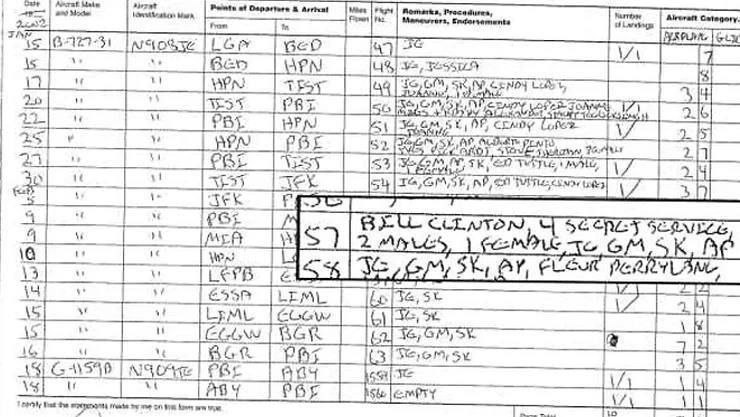 Date Aircraft Make and Model Aircraft Identification Mark Points of Departure & Arrival From To Miles Flown Flight No. Remarks, Procedures, Maneuvers, Endorsements Number of Landings Aircraft Category
2002
JAN
15 B-727-31 N908JE LGA BED 47 JE 1/1 7
15 " " BED HPN 48 JE, JESSICA 8
17 " " HPN TIST 49 JE, GM, SK, AP, CINDY LOPEZ, 3 4
20 " " TIST PBI 50 JE, GM, SK, AP, CINDY LOPEZ 1/1 2 6
22 " " PBI HPN 51 JE, GM, SK, AP, CINDY LOPEZ 1/ 2 5
25 " " HPN PBI 52 JE, GM, SK, AP, 2 7
27 " " PBI TIST 53 JE, GM, AP, SK, ED TUTTLE, 1 MALE, 1/ 2 4
30 " " TIST JFK 54 JE, GM, SK, AP, ED TUTTLE, CINDY LOPEZ 1/ 3 7
5 " " JFK
9 " " PBI M
57 BILL CLINTON, 4 SECRET SERVICE,
2 MALES, 1 FEMALE, JE, GM, SK, AP
9 " " MIA H
10 " " HPN L
58 JE, GM, SK, AP, FLEUR PERRYLANG,
13 " " LFPB E 2 2
14 " " ESSA LIML 60 JE, SK 1/ 2 4
15 " " LIML EGGW 61 JE, SK 1 8
15 " " EGGW BGR 62 JE, GM, SK 7 2
16 " " BGR PBI 63 JE, GM, SK 3 5
18 G-1159B N909JE PBI ABY 1559 JE 1/1 1 4
18 " " ABY PBI 1560 EMPTY 1/1 1 1
I certify that the statements made by me on this form are true.